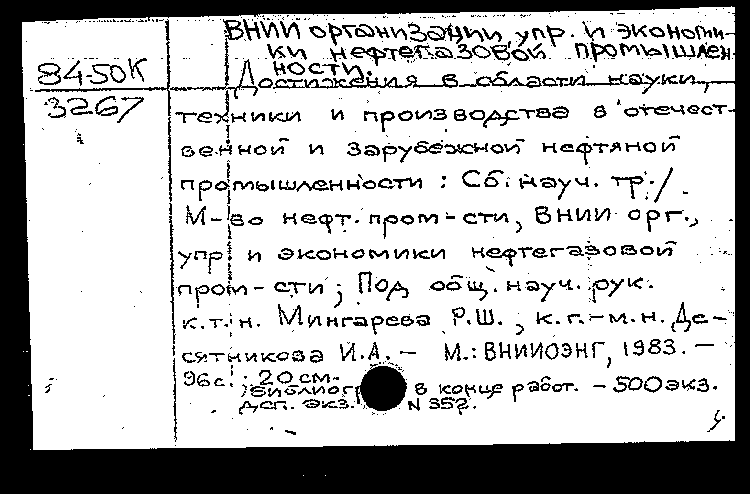 ВНИИ организации упр. и экономи-
ки нефтегазовой промышлен-
ности.
84-50К
Достижения в области науки,
3267
техники и производства в отечест-
венной и зарубежной нефтяной
промышленности : Сб. науч. тр. /
М-во нефт. пром-сти, ВНИИ орг.,
упр. и экономики нефтегазовой
пром-сти ; Под общ. науч. рук.
к.т.н. Мингарева Р.Ш., к.г.-м.н. Де-
сятникова И.А. — М.: ВНИИОЭНГ, 1983. —
96 с. ; 20 см.
Библиогр. в конце работ. — 500 экз.
Дсп. экз. N 352.